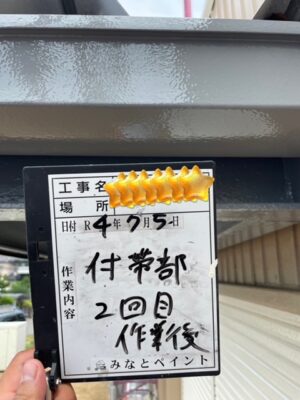 工事名
場所
日付 R4年7月5日
作業内容
付帯部
2回目
作業後
みなとペイント